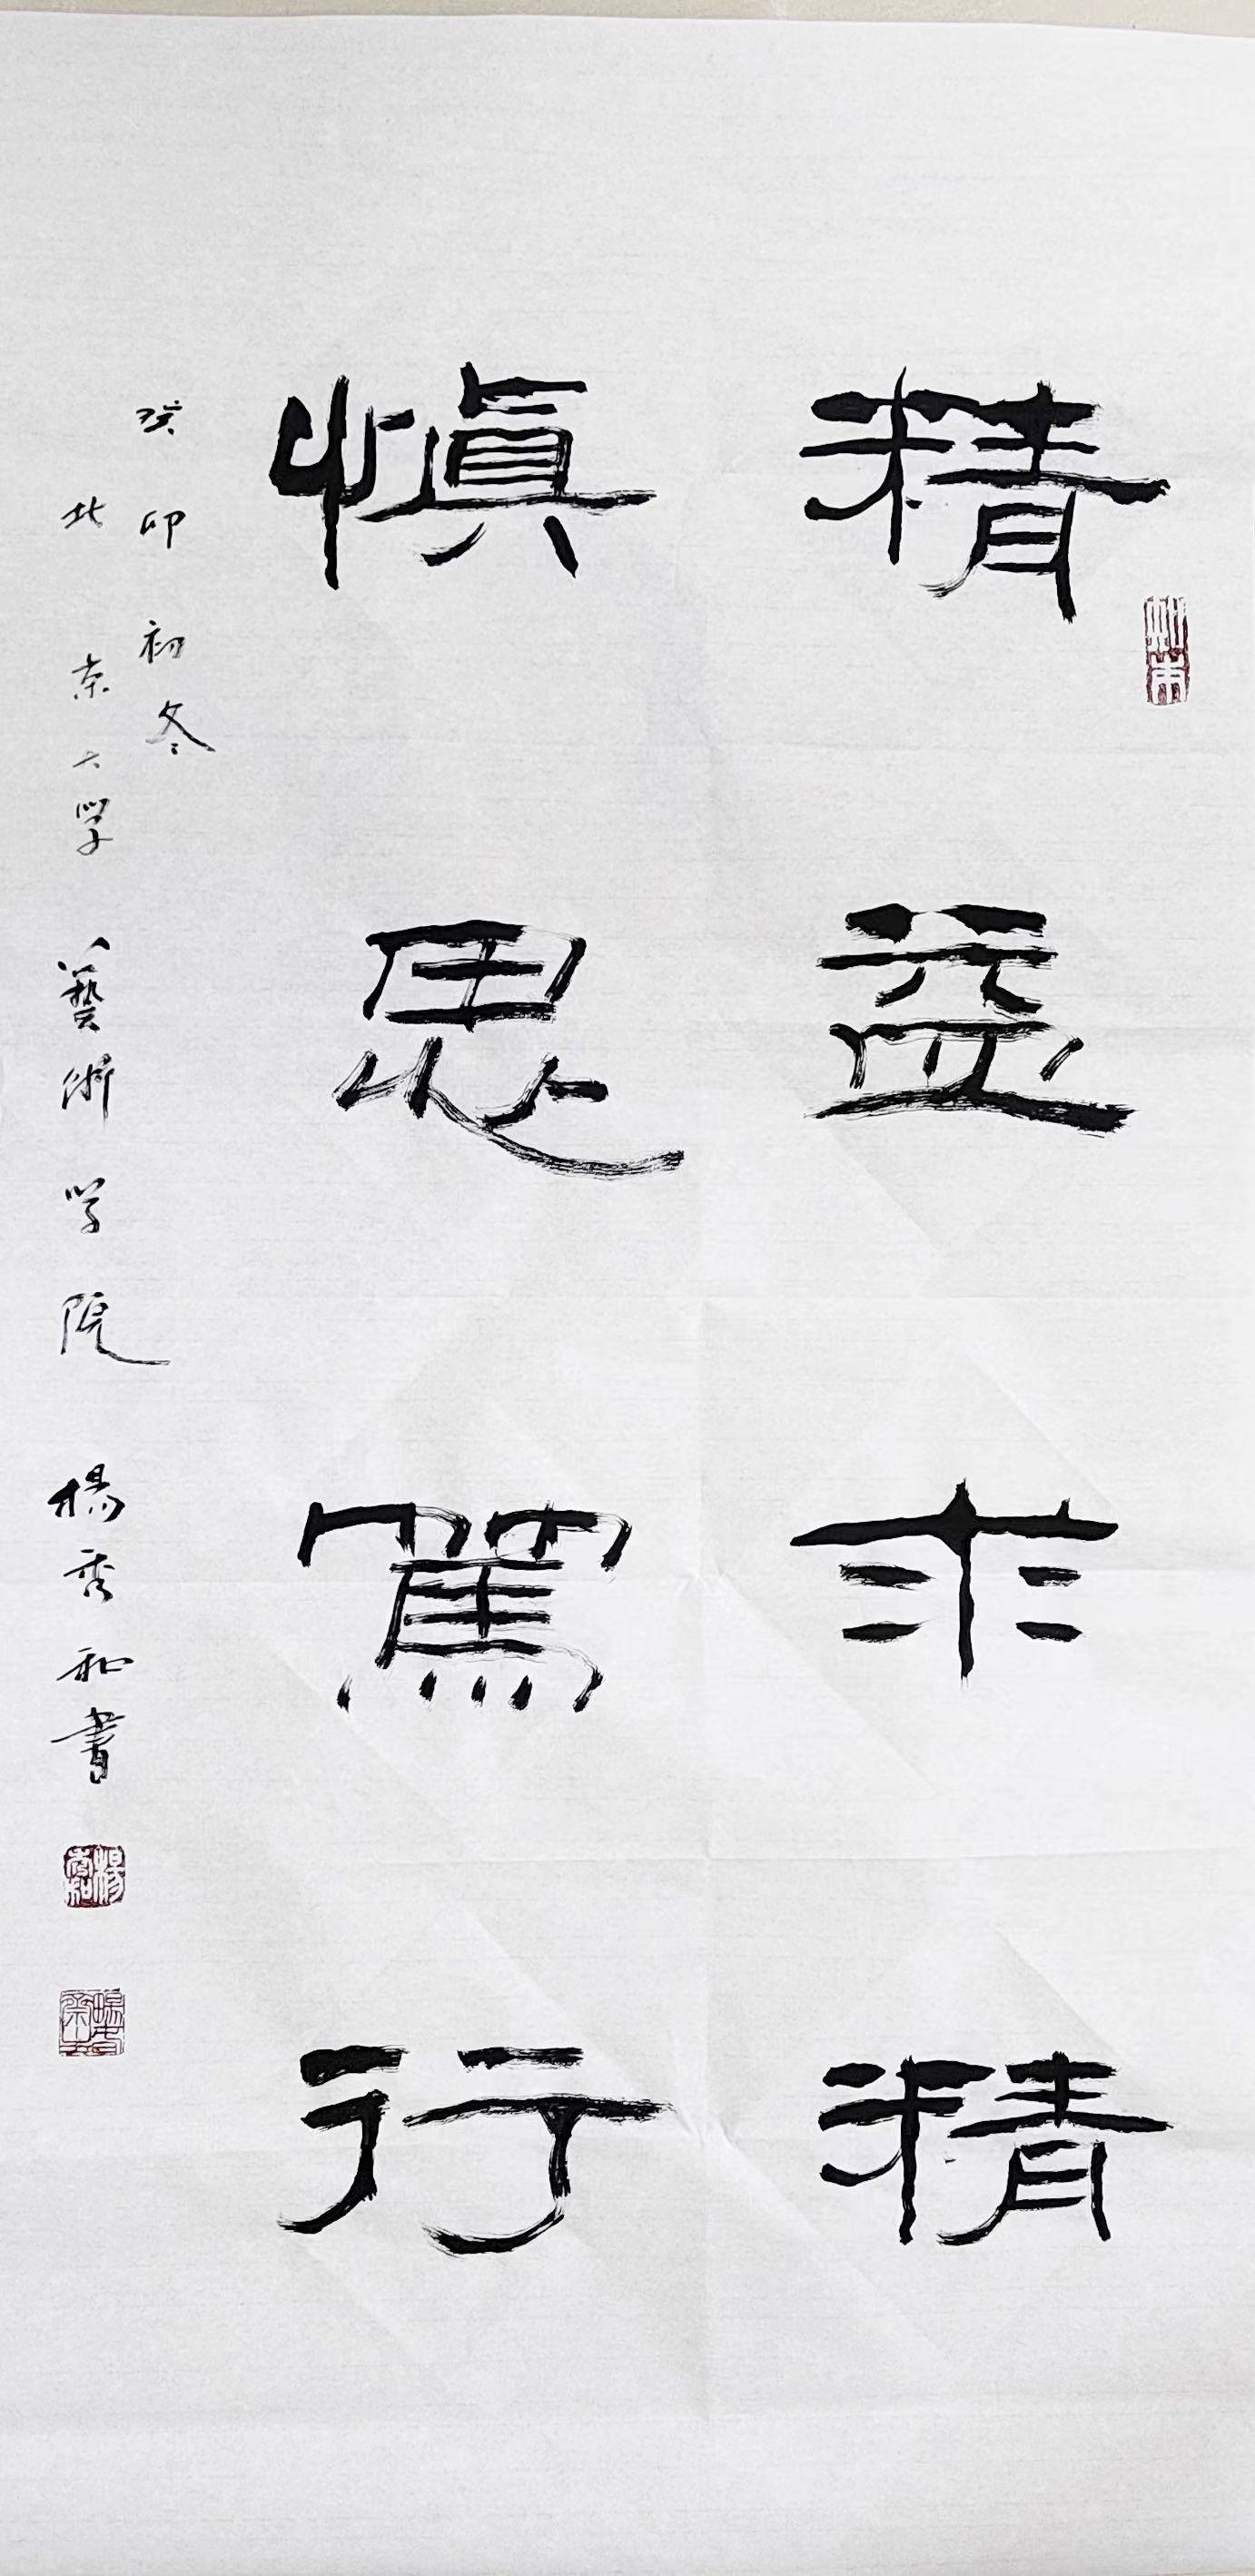 精益求精
慎思篤行
癸卯初冬
北京大学藝術学院楊秀和書